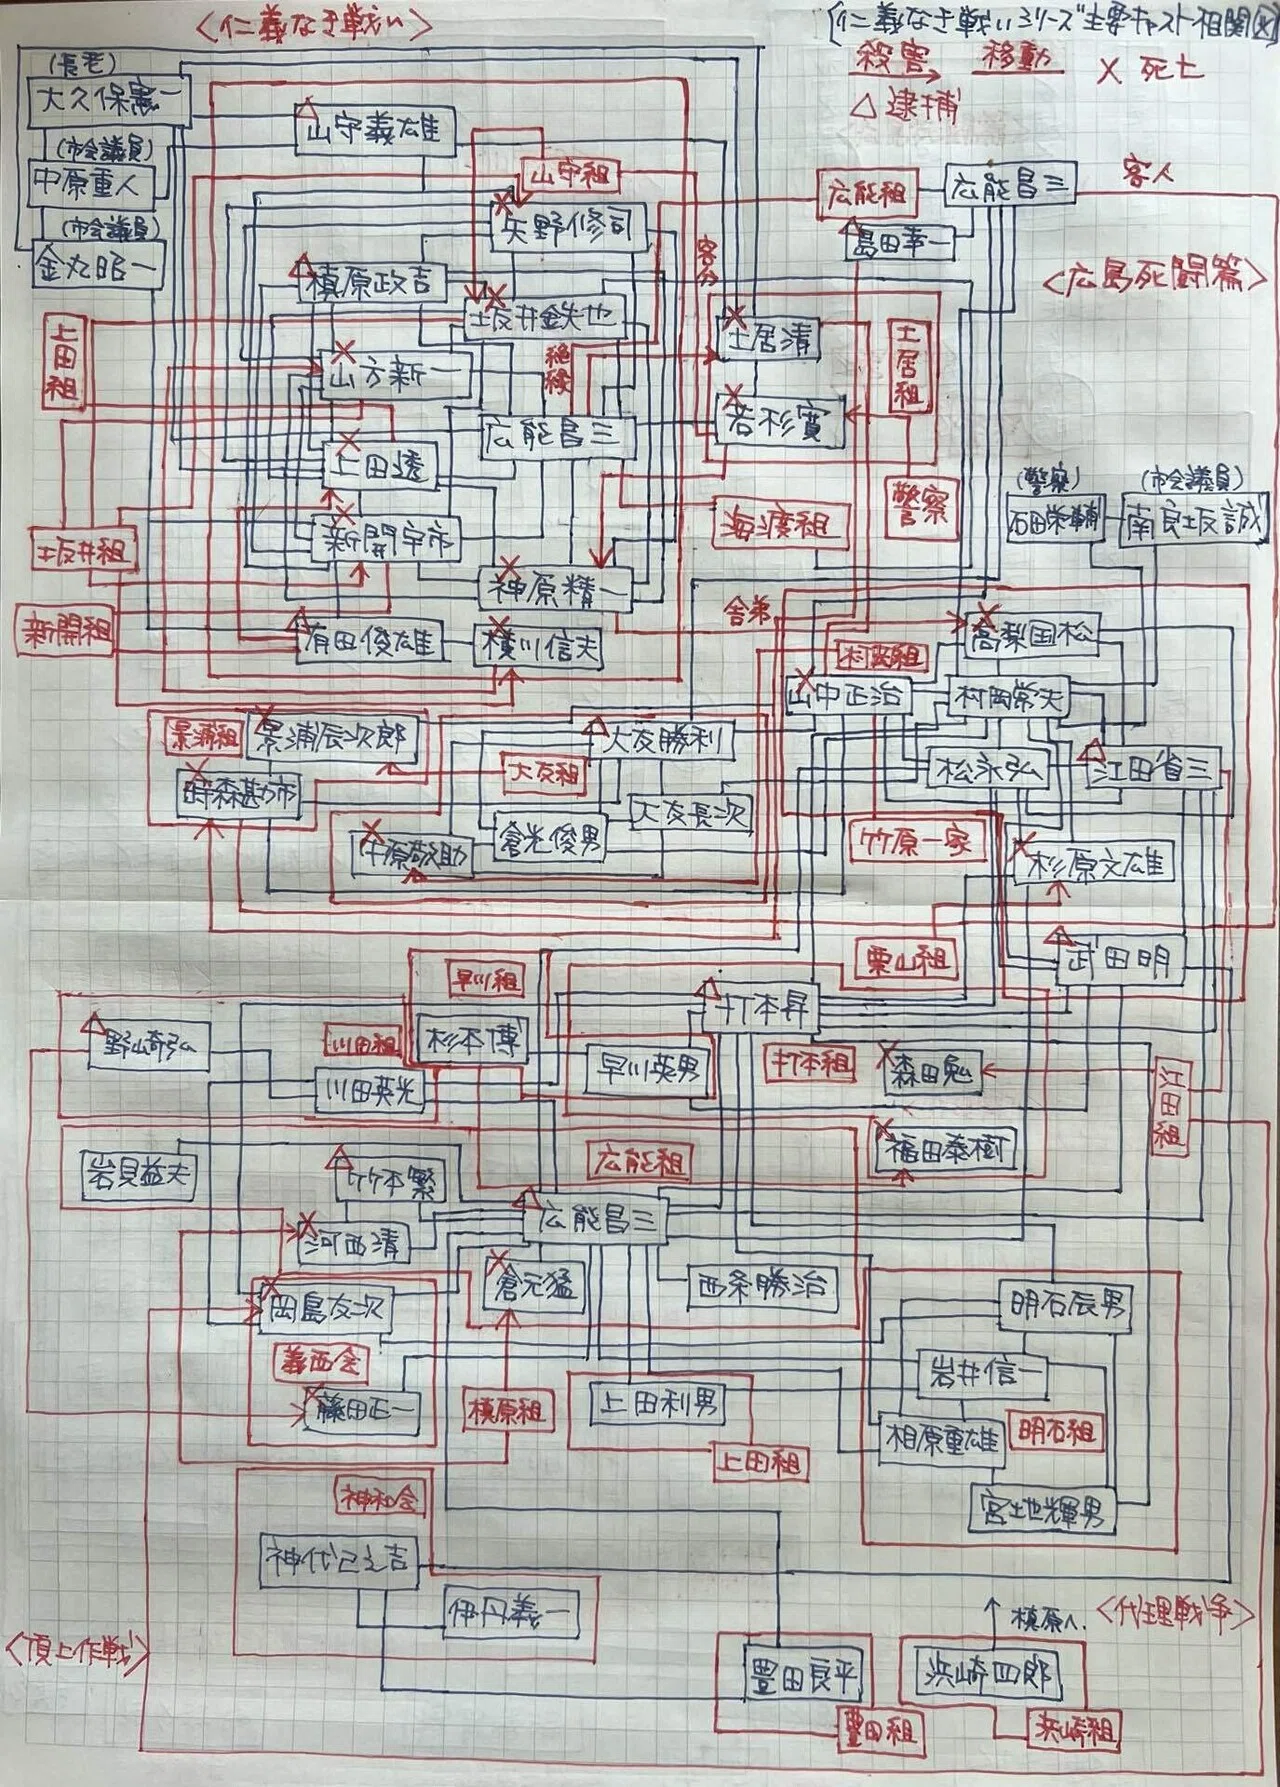 <仁義なき戦い>
[仁義なき戦いシリーズ主要キャスト相関図]
殺害 移動 × 死亡
△ 逮捕
(長老)
大久保憲一
山守義雄
(市会議員)
中原重人
山守組
広能組
広能昌三
客人
矢野修司
島田幸一
(市会議員)
金丸昭一
客分
槙原政吉
<広島死闘篇>
坂井鉄也
土居清
土居組
上田組
山方新一
絶縁
若杉寛
広能昌三
上田透
(警察)
(市会議員)
警察
石田栄輔
南良坂誠
海渡組
新開宇市
坂井組
神原精一
舎弟
高梨国松
新開組
有田俊雄
横川信夫
村岡組
山中正治
村岡常夫
景浦組
景浦辰次郎
大友勝利
大友組
松永弘
江田省三
時森勘市
大友長次
倉光俊男
竹原一家
中原敬助
杉原文雄
栗山組
武田明
早川組
打本昇
野崎弘
川田組
杉本博
早川英男
打本組
森田勉
江田組
川田英光
岩見益夫
竹本繁
広能組
福田泰樹
広能昌三
河西清
倉元猛
西条勝治
岡島友次
明石辰男
義西会
岩井信一
藤田正一
槙原組
上田利男
相原重雄
明石組
上田組
神和会
宮地輝男
神代巳之吉
伊丹義一
↑ 槙原へ.
<代理戦争>
<頂上作戦>
豊田良平
浜崎四郎
豊田組
浜崎組